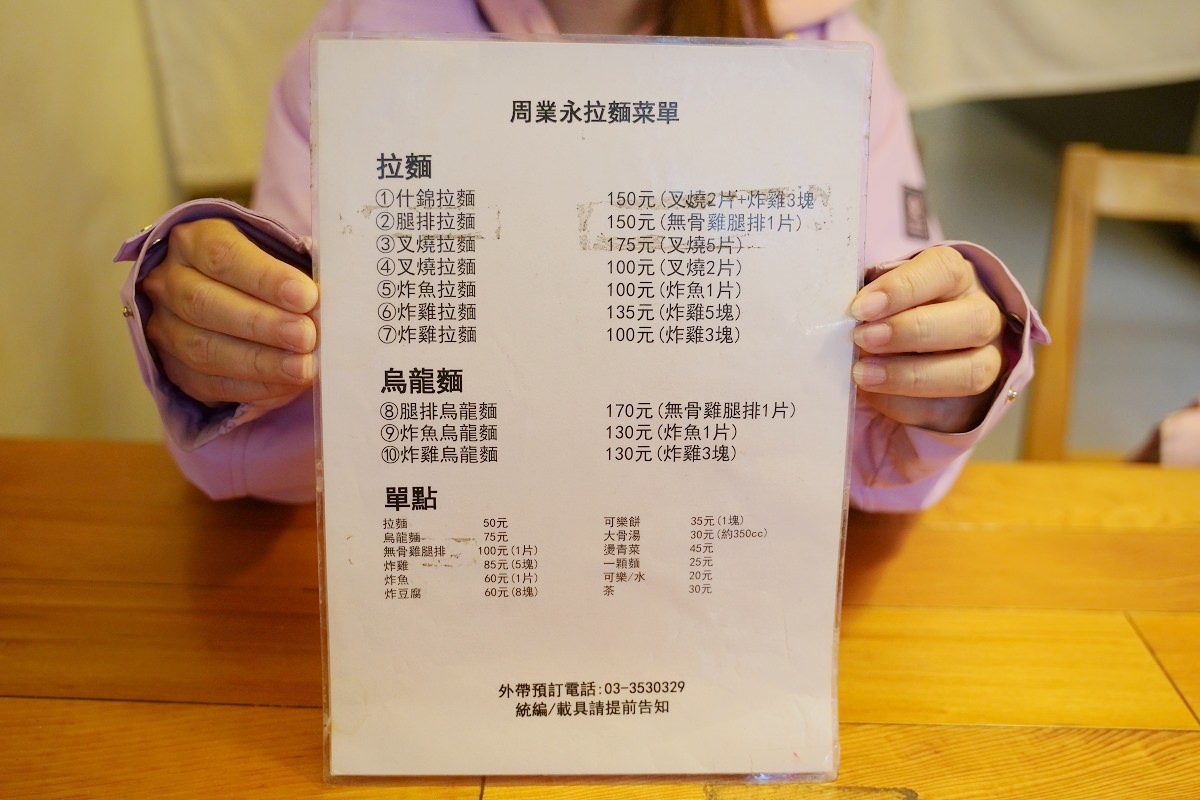 周業永拉麵菜單
拉麵
①什錦拉麵 150元(叉燒2片+炸雞3塊
②腿排拉麵 150元(無骨雞腿排1片)
③叉燒拉麵 175元(叉燒5片)
④叉燒拉麵 100元(叉燒2片)
⑤炸魚拉麵 100元(炸魚1片)
⑥炸雞拉麵 135元(炸雞5塊)
⑦炸雞拉麵 100元(炸雞3塊)
烏龍麵
⑧腿排烏龍麵 170元(無骨雞腿排1片)
⑨炸魚烏龍麵 130元(炸魚1片)
⑩炸雞烏龍麵 130元(炸雞3塊)
單點
拉麵 50元 可樂餅 35元(1塊)
烏龍麵 75元 大骨湯 30元(約350cc)
無骨雞腿排 100元(1片) 燙青菜 45元
炸雞 85元(5塊) 一顆麵 25元
炸魚 60元(1片) 可樂/水 20元
炸豆腐 60元(8塊) 茶 30元
外帶預訂電話:03-3530329
統編/載具請提前告知